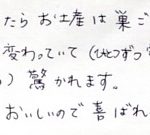 たらお土産は巣ご
変わっていて(ひとつずつ
)驚かれます。
おいしいので喜ばれ